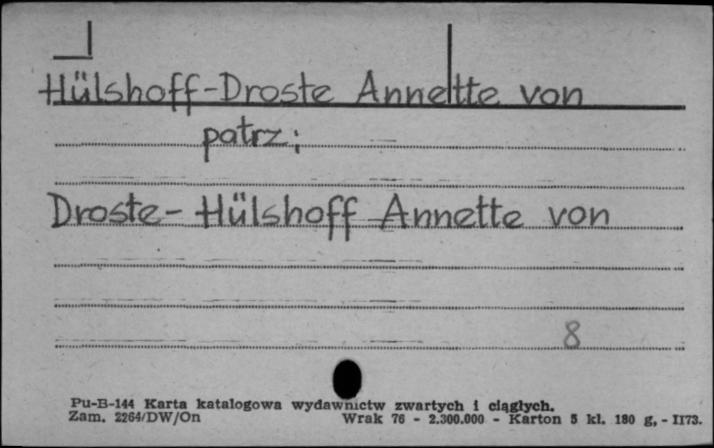 Hülshoff-Droste Annette von
patrz:
Droste-Hülshoff Annette von
8
Pu-B-144 Karta katalogowa wydawnictw zwartych i ciągłych.
Zam. 2264/DW/On Wrak 76 - 2.300.000 - Karton 5 kl. 180 g, - II73.